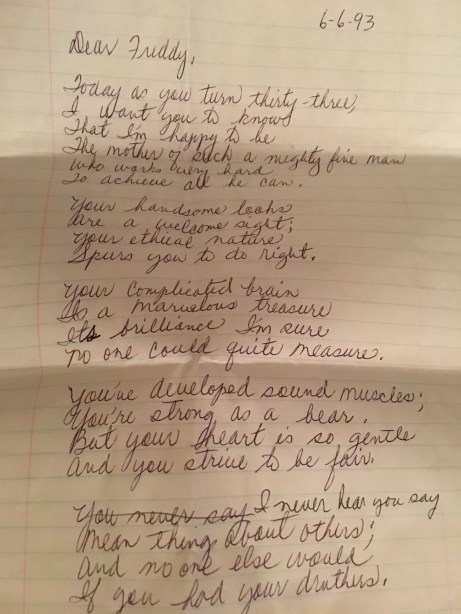 6-6-93
Dear Freddy,
Today as you turn thirty-three,
I want you to know
That I'm happy to be
The mother of such a mighty fine man
Who works very hard
To achieve all he can.
Your handsome looks
Are a welcome sight;
Your ethical nature
Spurs you to do right.
Your complicated brain
Is a marvelous treasure
Its brilliance I'm sure
No one could quite measure.
You've developed sound muscles;
You're strong as a bear.
But your heart is so gentle
And you strive to be fair.
You never say I never hear you say
Mean things about others;
And no one else would
If you had your druthers.